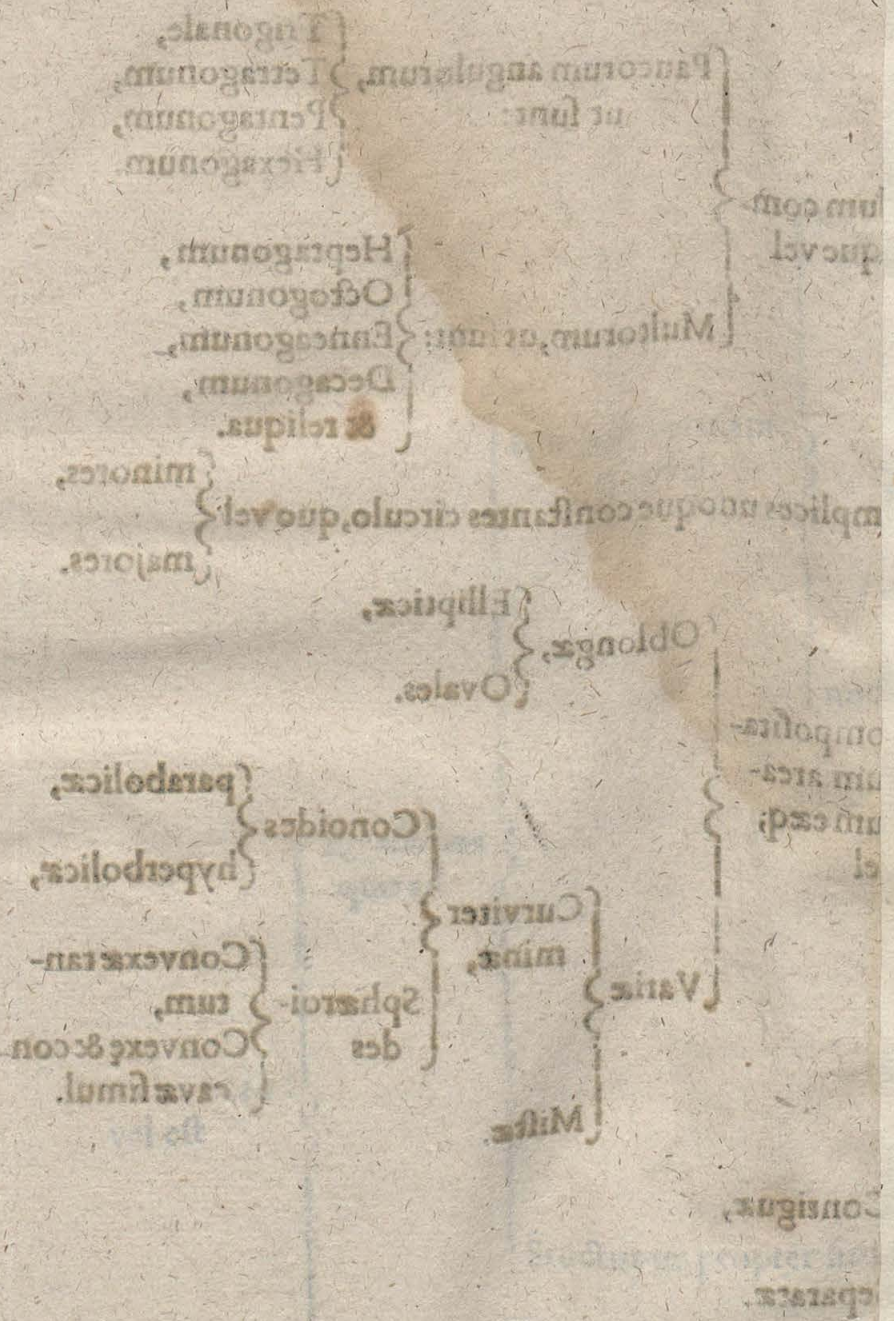 Trigonale,
Paucorum angulorum,
ut sunt:
Tetragonum,
Pentagonum,
Hexagonum.
lum com-
que vel
Heptagonum,
Octogonum,
Multorum, ut sunt:
Enneagonum,
Decagonum,
& reliqua.
minores,
mplices unoque constantes circulo, quo vel
majores.
Ellipticæ,
Oblongæ,
Ovales.
omposita-
um area-
um eæq;
el
parabolicæ,
Conoides
hyperbolicæ,
Curviter
minæ,
Convexæ tan-
tum,
Sphæroi-
des
Variæ
Convexę & con-
cavæ simul.
vel est
Mistæ.
Contiguæ,
eparatæ.